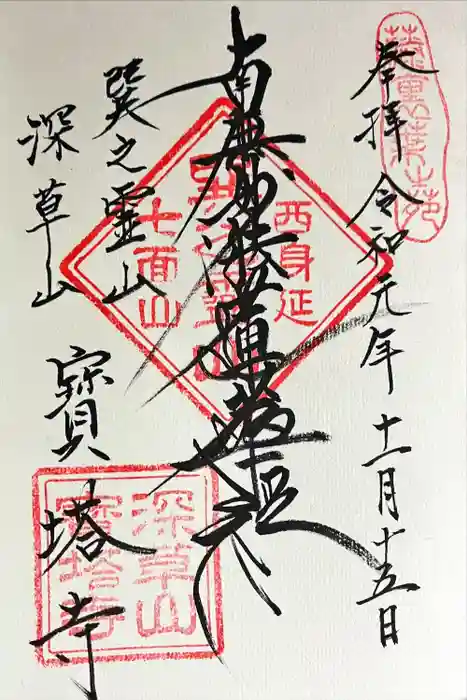 奉拝 令和元年十一月十五日
南無妙法蓮華経
巽之霊山
深草山 寳塔寺
西身延
七面山
深草山
寳塔寺